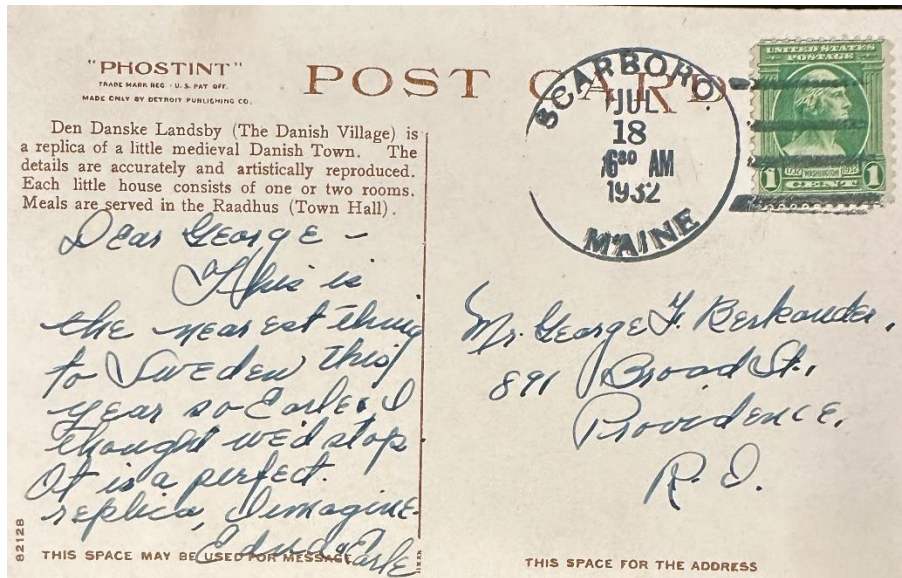 "PHOSTINT"
TRADE MARK REG · U.S. PAT OFF.
MADE ONLY BY DETROIT PUBLISHING CO.
POST CARD
Den Danske Landsby (The Danish Village) is
a replica of a little medieval Danish Town. The
details are accurately and artistically reproduced.
Each little house consists of one or two rooms.
Meals are served in the Raadhus (Town Hall).
Dear George –
This is
the nearest thing
to Sweden this
year so Earle & I
thought we'd stop
It is a perfect
replica, I imagine.
Edna & Earle
82128
THIS SPACE MAY BE USED FOR MESSAGE
SCARBORO.
JUL
18
630 AM
1932
MAINE
UNITED STATES
POSTAGE
1732 WASHINGTON 1932
1 CENT 1
Mr. George F. Berkander,
891 Broad St.,
Providence,
R. I.
THIS SPACE FOR THE ADDRESS